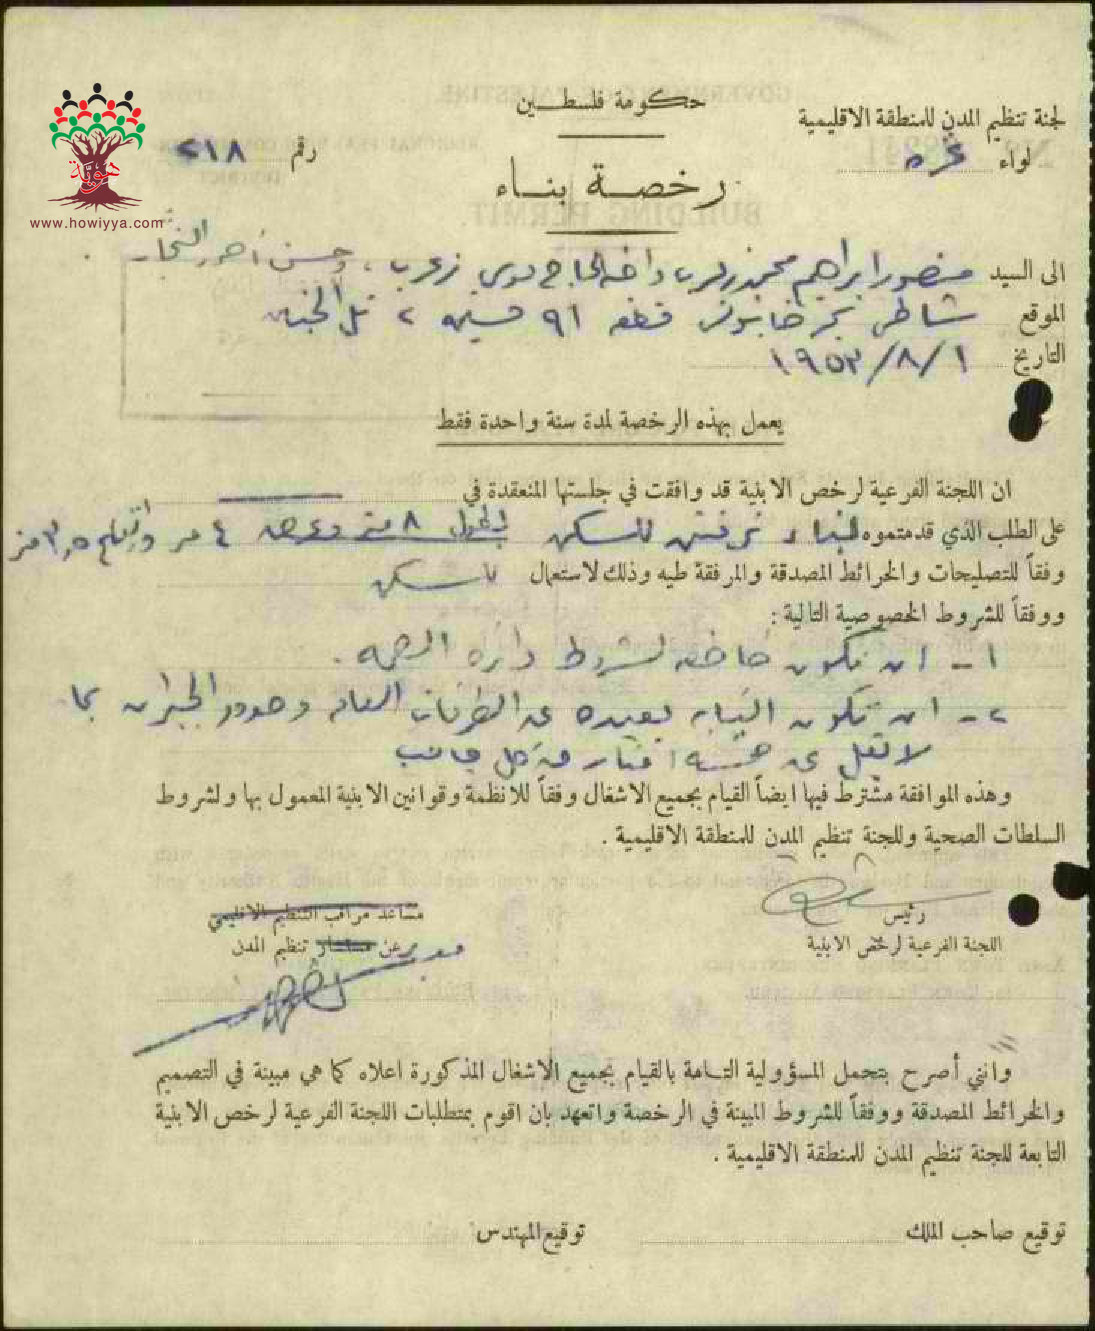 حكومة فلسطين
لجنة تنظيم المدن للمنطقة الاقليمية
لواء غزه
رقم ٢١٨
هوية
www.howiyya.com
رخصة بناء
الى السيد منصور ابراهيم محمد زعرب الحاج موسى زعرب ، وحسن احمد النجار
الموقع شاطئ بحر خانيونس قطعه ٩١ قسيمه ٢ تل الجنان
التاريخ ١٩٥٣/٨/١
يعمل بهذه الرخصة لمدة سنة واحدة فقط
ان اللجنة الفرعية لرخص الابنية قد وافقت في جلستها المنعقدة في
على الطلب الذي قدمتموه لبناء غرفتين للسكن الطول ٨ متر وعرض ٤ متر وارتفاع ٣٫٥ متر
وفقاً للتصليحات والخرائط المصدقة والمرفقة طيه وذلك لاستعمال للسكن
ووفقاً للشروط الخصوصية التالية :
١ - ان تكون خاضعه لشروط دائرة الصحه .
٢ - ان تكون البناية بعيده عن الطرقات العامه وحدود الجيران بما
لا يقل عن خمسه امتار من كل جانب
وهذه الموافقة مشترط فيها ايضاً القيام بجميع الاشغال وفقاً للانظمة وقوانين الابنية المعمول بها ولشروط
السلطات الصحية وللجنة تنظيم المدن للمنطقة الاقليمية .
رئيس
اللجنة الفرعية لرخص الابنية
مساعد مراقب التنظيم الاقليمي
عن مستشار تنظيم المدن
مدير
وانني أصرح بتحمل المسؤولية التامة بالقيام بجميع الاشغال المذكورة اعلاه كما هي مبينة في التصميم
والخرائط المصدقة ووفقاً للشروط المبينة في الرخصة واتعهد بان اقوم بمتطلبات اللجنة الفرعية لرخص الابنية
التابعة للجنة تنظيم المدن للمنطقة الاقليمية .
توقيع صاحب الملك
توقيع المهندس